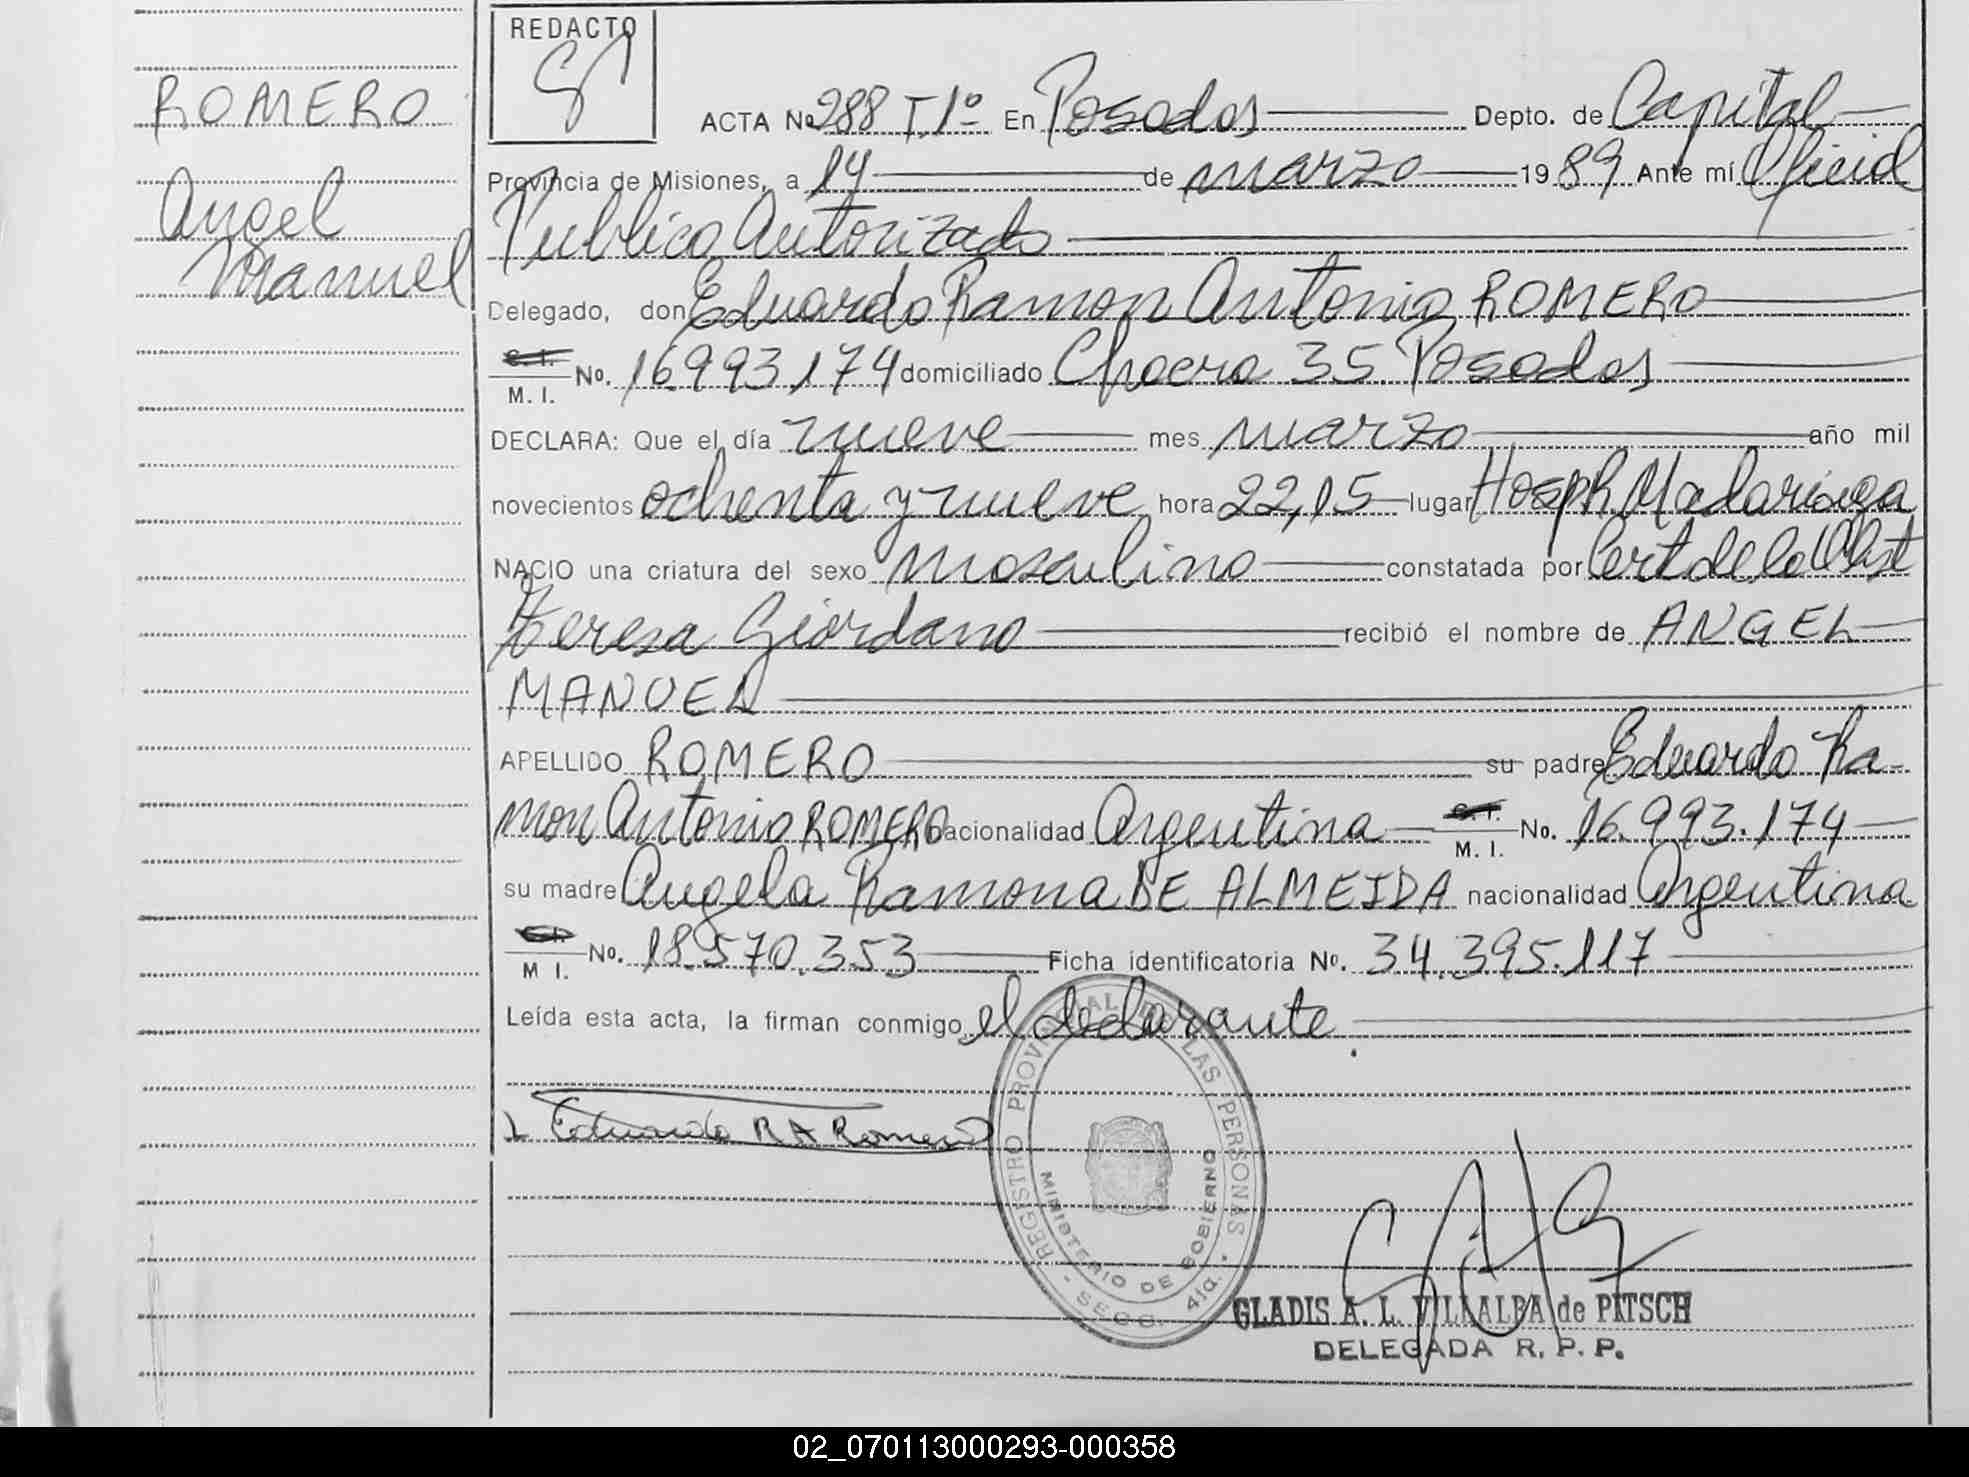 REDACTO
ROMERO
Angel
Manuel
ACTA Nº 288 T.1º En Posadas Depto. de Capital
Provincia de Misiones, a 14 de marzo 1989 Ante mí Oficial
Publico Autorizado
Delegado, don Eduardo Ramon Antonio ROMERO
C. I.
M. I. No. 16.993.174 domiciliado Chacra 35 Posadas
DECLARA: Que el día nueve mes marzo año mil
novecientos ochenta y nueve hora 22,15 lugar Hosp. R. Madariaga
NACIO una criatura del sexo masculino constatada por Cert de la Obst
Teresa Giordano recibió el nombre de ANGEL
MANUEL
APELLIDO ROMERO su padre Eduardo Ra-
mon Antonio ROMERO nacionalidad Argentina C. I. M. I. No. 16.993.174
su madre Angela Ramona DE ALMEIDA nacionalidad Argentina
M I. No. 18.570.353 Ficha identificatoria No. 34.395.117
Leída esta acta, la firman conmigo el declarante.
Eduardo R A Romero
REGISTRO PROVINCIAL DE LAS PERSONAS
MINISTERIO DE GOBIERNO
SECC. 4ta.
GLADIS A. L. VILLALBA de PITSCH
DELEGADA R. P. P.
02_070113000293-000358